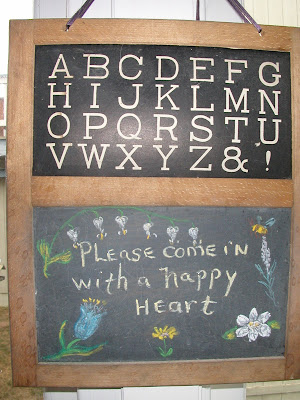 ABCDEFG
HIJKLMN
OPQRSTU
VWXYZ&!
Please come in
with a happy
Heart